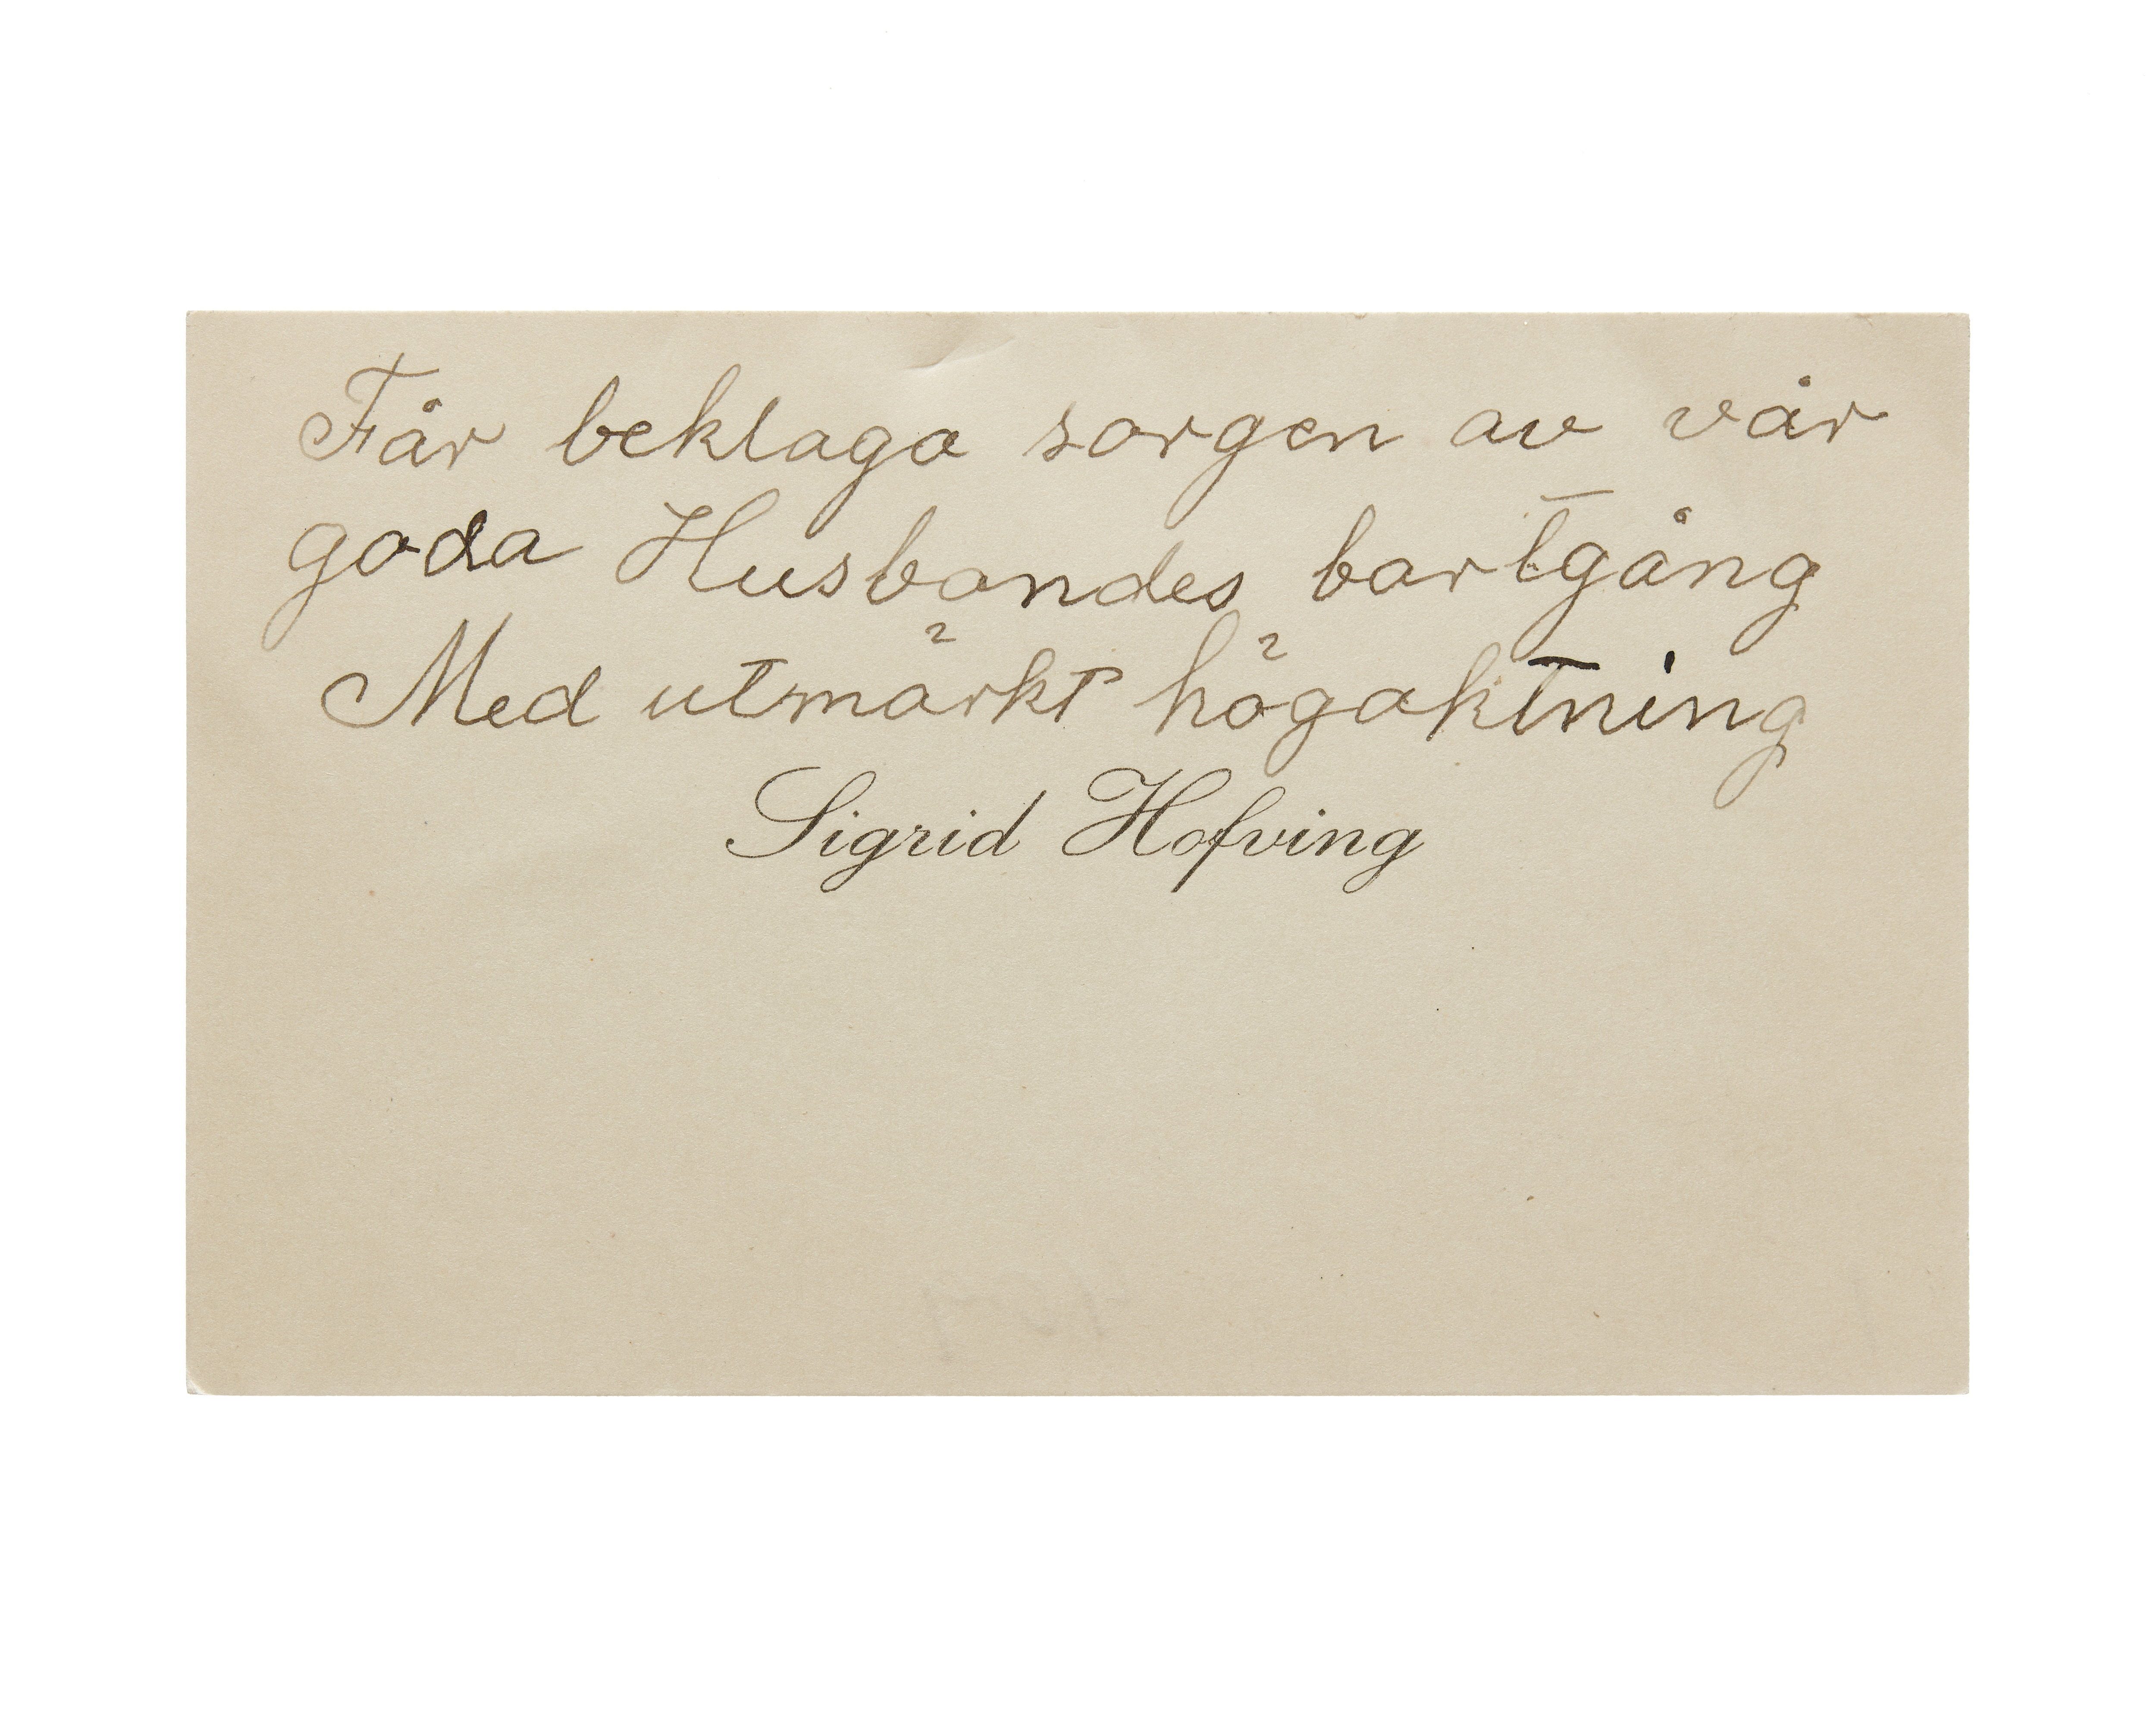 Får beklaga sorgen av vår
goda Husbondes bortgång
Med utmärkt högaktning
Sigrid Hofving